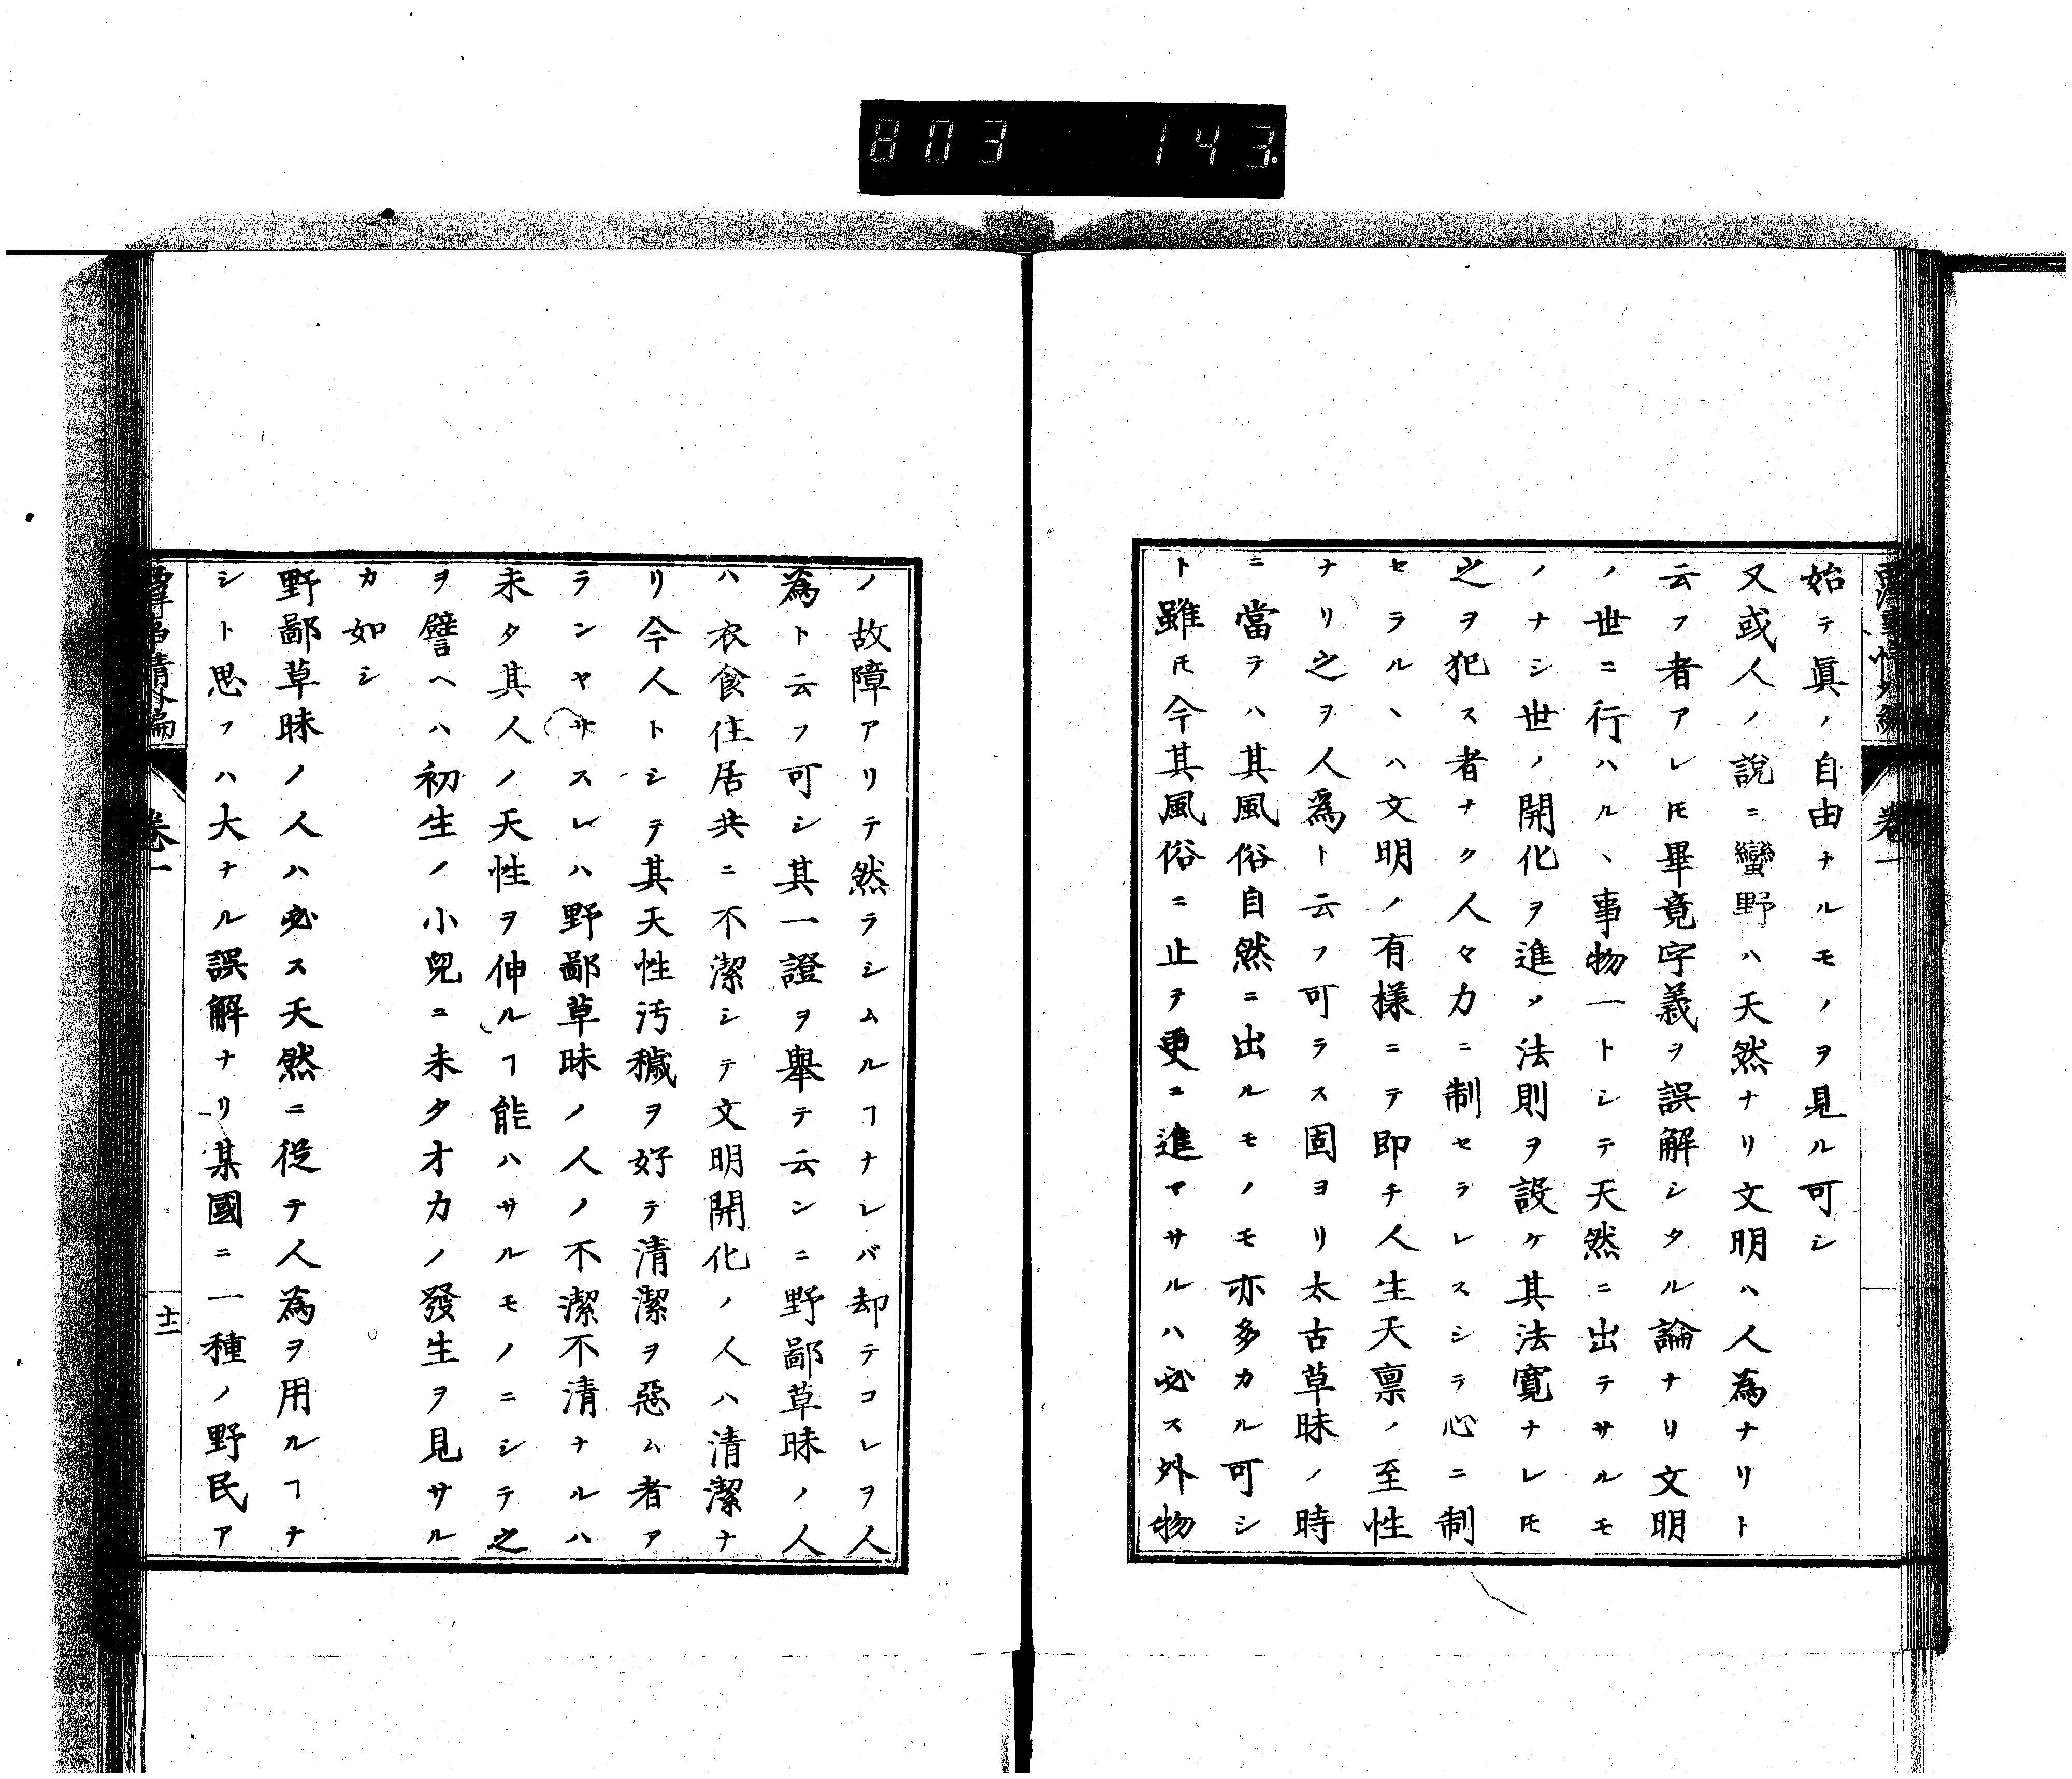 803 143.
始テ眞ノ自由ナルモノヲ見ル可シ
又或人ノ說ニ蠻野ハ天然ナリ文明ハ人為ナリト
云フ者アレ𪜈畢竟字義ヲ誤解シタル論ナリ文明
ノ世ニ行ハル丶事物一トシテ天然ニ出テサルモ
ノナシ世ノ開化ヲ進メ法則ヲ設ケ其法寛ナレ𪜈
之ヲ犯ス者ナク人々力ニ制セラレスシテ心ニ制
セラル丶ハ文明ノ有樣ニテ即チ人生天禀ノ至性
ナリ之ヲ人爲ト云フ可ラス固ヨリ太古草昧ノ時
ニ當テハ其風俗自然ニ出ルモノモ亦多カル可シ
ト雖𪜈今其風俗ニ止テ更ニ進マサルハ必ス外物
ノ故障アリテ然ラシムルヿナレバ却テコレヲ人
為ト云フ可シ其一證ヲ擧テ云ンニ野鄙草昧ノ人
ハ衣食住居共ニ不潔シテ文明開化ノ人ハ清潔ナ
リ今人トシテ其天性汚穢ヲ好テ清潔ヲ惡ム者ア
ランヤサスレハ野鄙草昧ノ人ノ不潔不清ナルハ
未タ其人ノ天性ヲ伸ルヿ能ハサルモノニシテ之
ヲ譬ヘハ初生ノ小兒ニ未タオカノ發生ヲ見サル
カ如シ
野鄙草昧ノ人ハ必ス天然ニ從テ人為ヲ用ルヿナ
シト思フハ大ナル誤解ナリ某國ニ一種ノ野民ア
卷一
十二